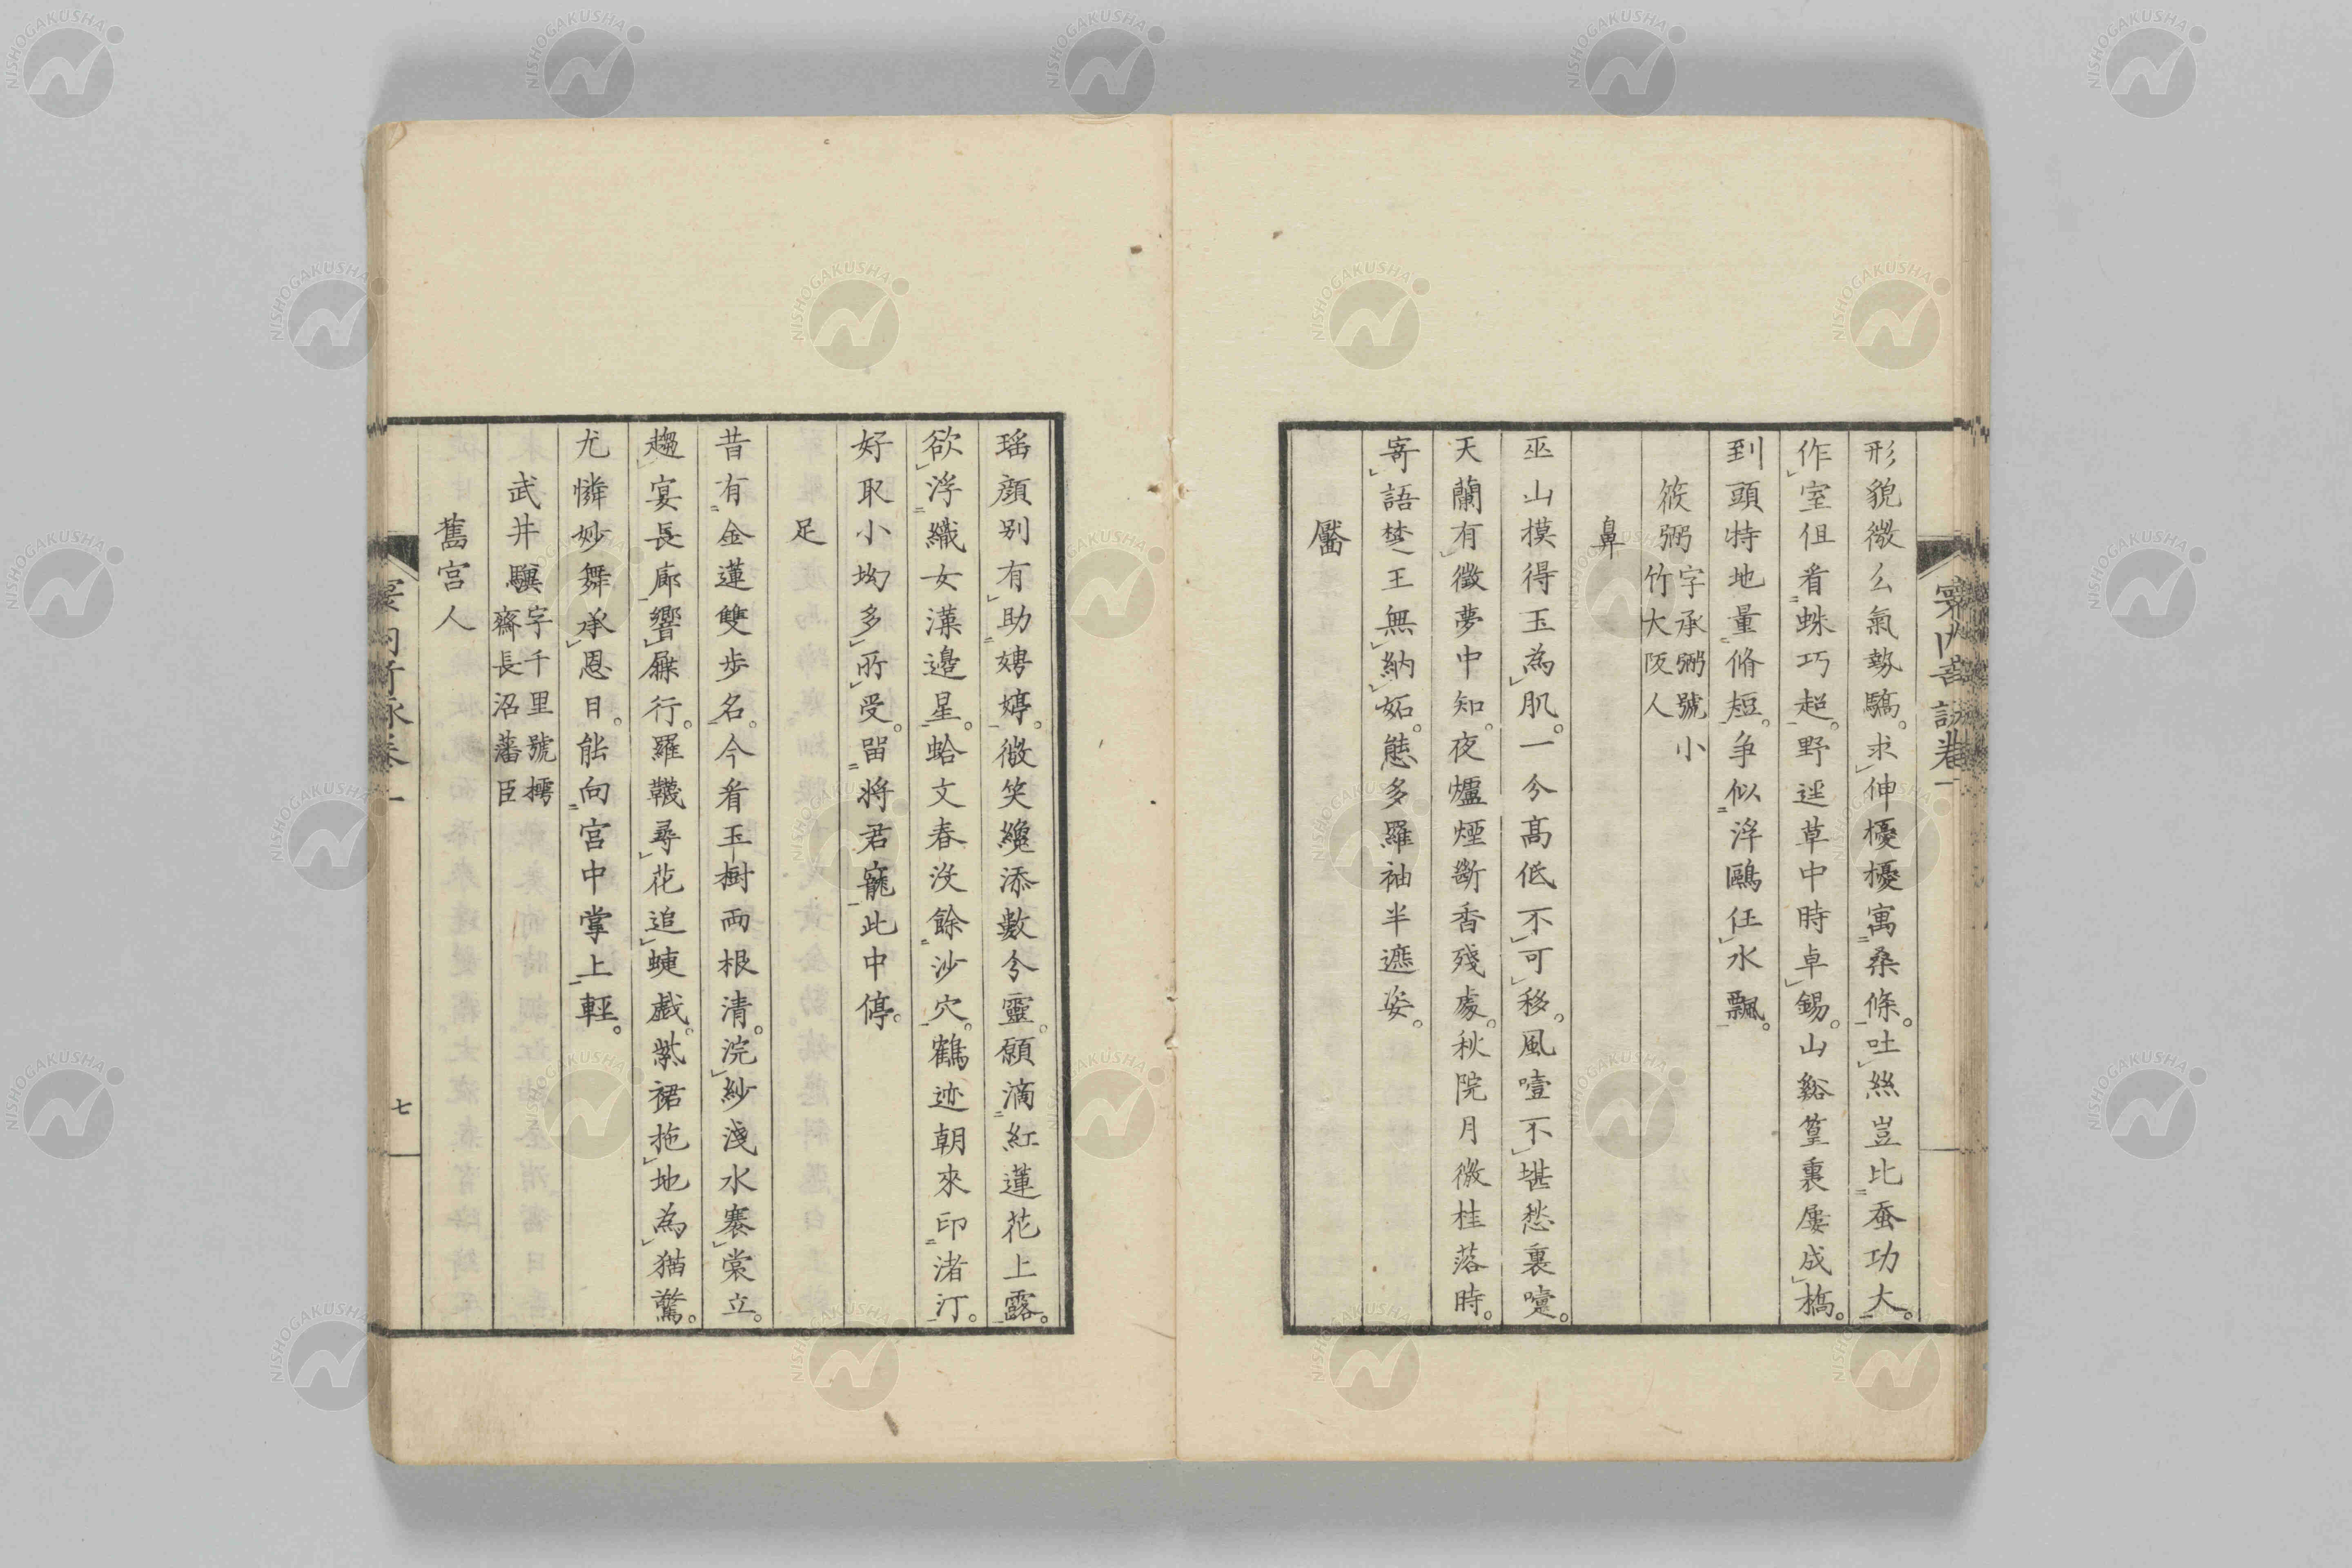 形貌微么氣勢驕。求伸擾擾寓桑條。吐絲豈比蚕功大。
作室但看蛛巧超。野逕草中時卓錫。山谿篁裏屢成橋。
到頭特地量脩短。爭似浮鷗任水飄。
筱弼字承弼號小竹大阪人
鼻
巫山摸得玉為肌。一兮高低不可移。風噎不堪愁裏嚏。
天蘭有徵夢中知。夜爐煙斷香殘處。秋院月微桂落時。
寄語楚王無納妬。態多羅袖半遮姿。
靨
瑶顔别有助娉婷。微笑纔添數兮靈。願滴紅蓮花上露。
欲浮織女漢邊星。蛤文春没餘沙穴。鶴迹朝來印渚汀。
好取小坳多所受。留將君寵此中停。
足
昔有金蓮雙歩名。今看玉樹兩根清。浣紗淺水褰裳立。
趨宴長廊響屧行。羅韈尋花追蝶戲。紫裙拖地為猫驚。
尤憐妙舞承恩日。能向宮中掌上輕。
武井驥字千里號樗齋長沼藩臣
舊宮人
七
NISHOGAKUSHA